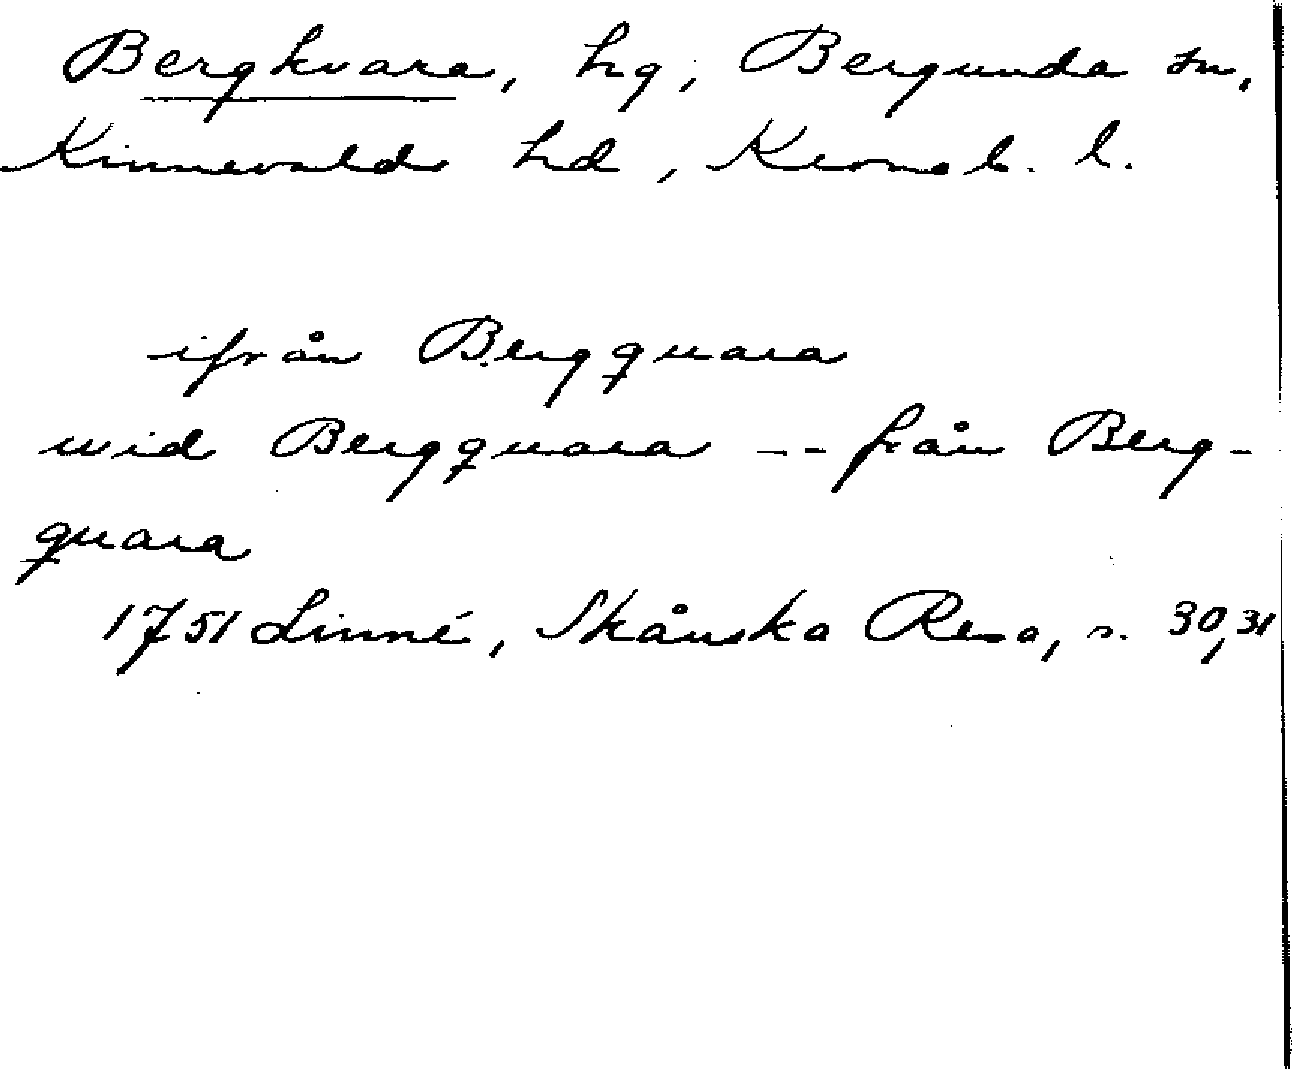 Bergkvara, hg, Bergunda sn,
Kinnevalds hd, Kronob. l.
ifrån Bergquara
wid Bergquara -- från Berg-
quara
1751 Linné, Skånska Resa, s. 30, 31